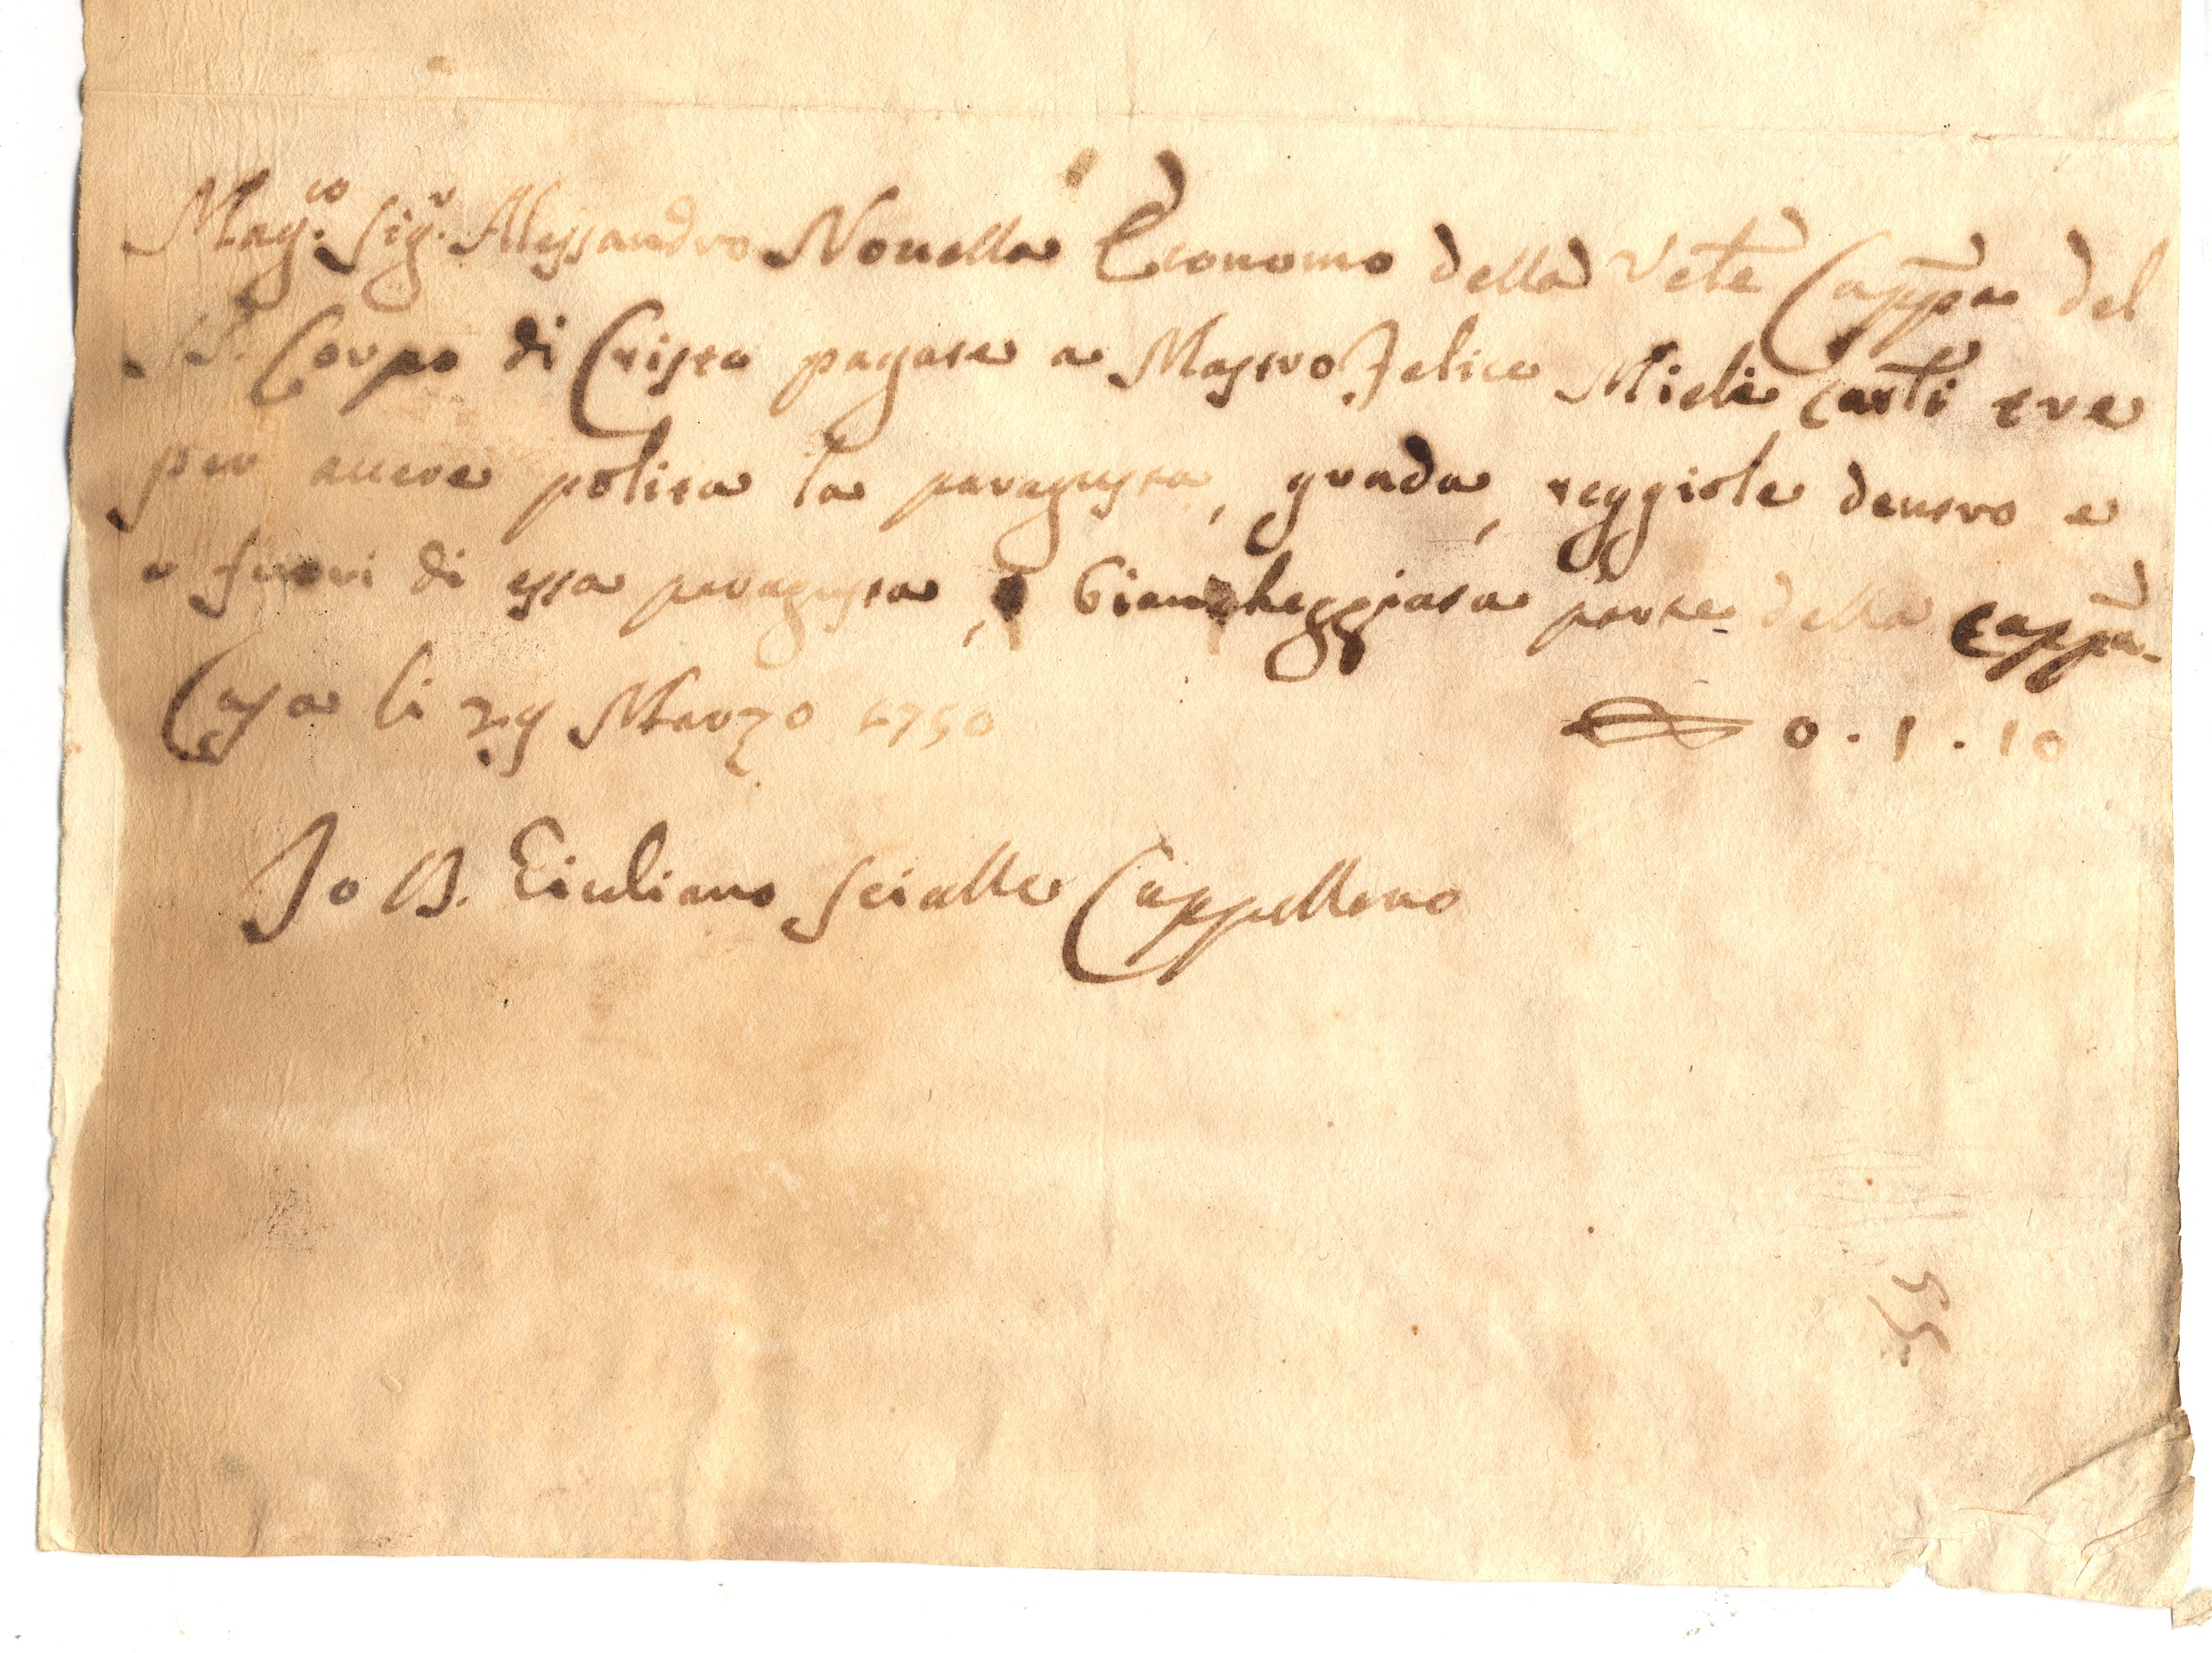 Mag.co Sig.r Alessandro Nouella Economo della Vete Cappa del
SS. Corpo di Cristo pagate a Mastro Felice Miele carti tre
per auere polita la paragusta, grada, reggiole dentro e
e fuori di essa paragusta, biancheggiata parte della Cappa.
Casa li 29 Marzo 1750 0.1.10
Io D. Giuliano Scialle Cappellano
55